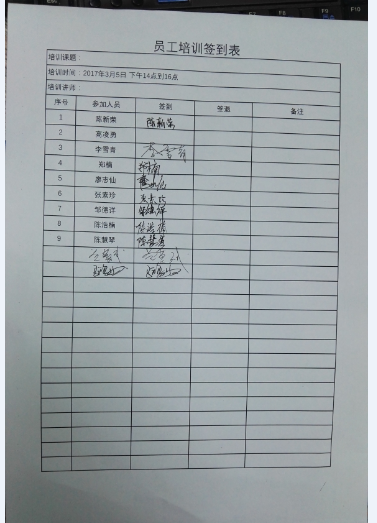 员工培训签到表
培训课题：
培训时间：2017年3月5日 下午14点到16点
培训讲师：
序号 参加人员 签到 签退 备注
1 陈新荣 陈新荣
2 高凌勇
3 李雪青 李雪青
4 郑楠 郑楠
5 廖志仙
6 张素珍
7 邹德洋 邹德洋
8 陈浩楠
9 陈慧琴 陈慧琴